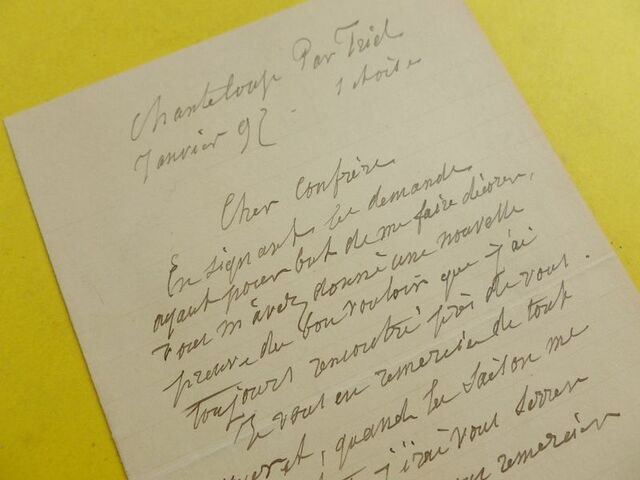 Chanteloup Par Triel
Janvier 92. S et Oise
Cher Confrère
En signant la demande
ayant pour but de me faire décorer,
vous m'avez donné une nouvelle
preuve du bon vouloir que j'ai
toujours rencontré près de vous.
Je vous en remercie de tout
quand la saison me
j'irai vous serrer
remercier